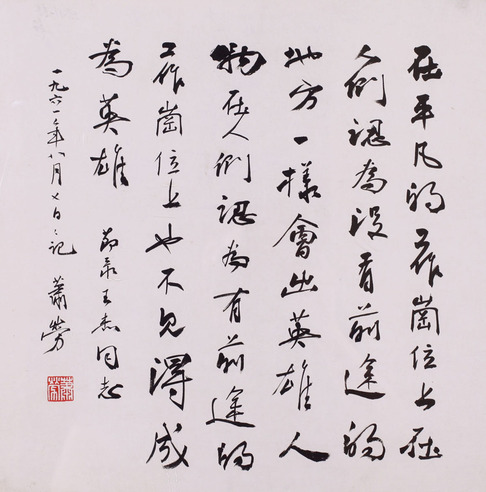 在平凡的工作崗位上在
人们認為没有前途的
地方一樣會出英雄人
物在人们認为有前途的
工作崗位上也不见得成
為英雄 節录王杰同志
一九六一年八月七日々记 蕭勞